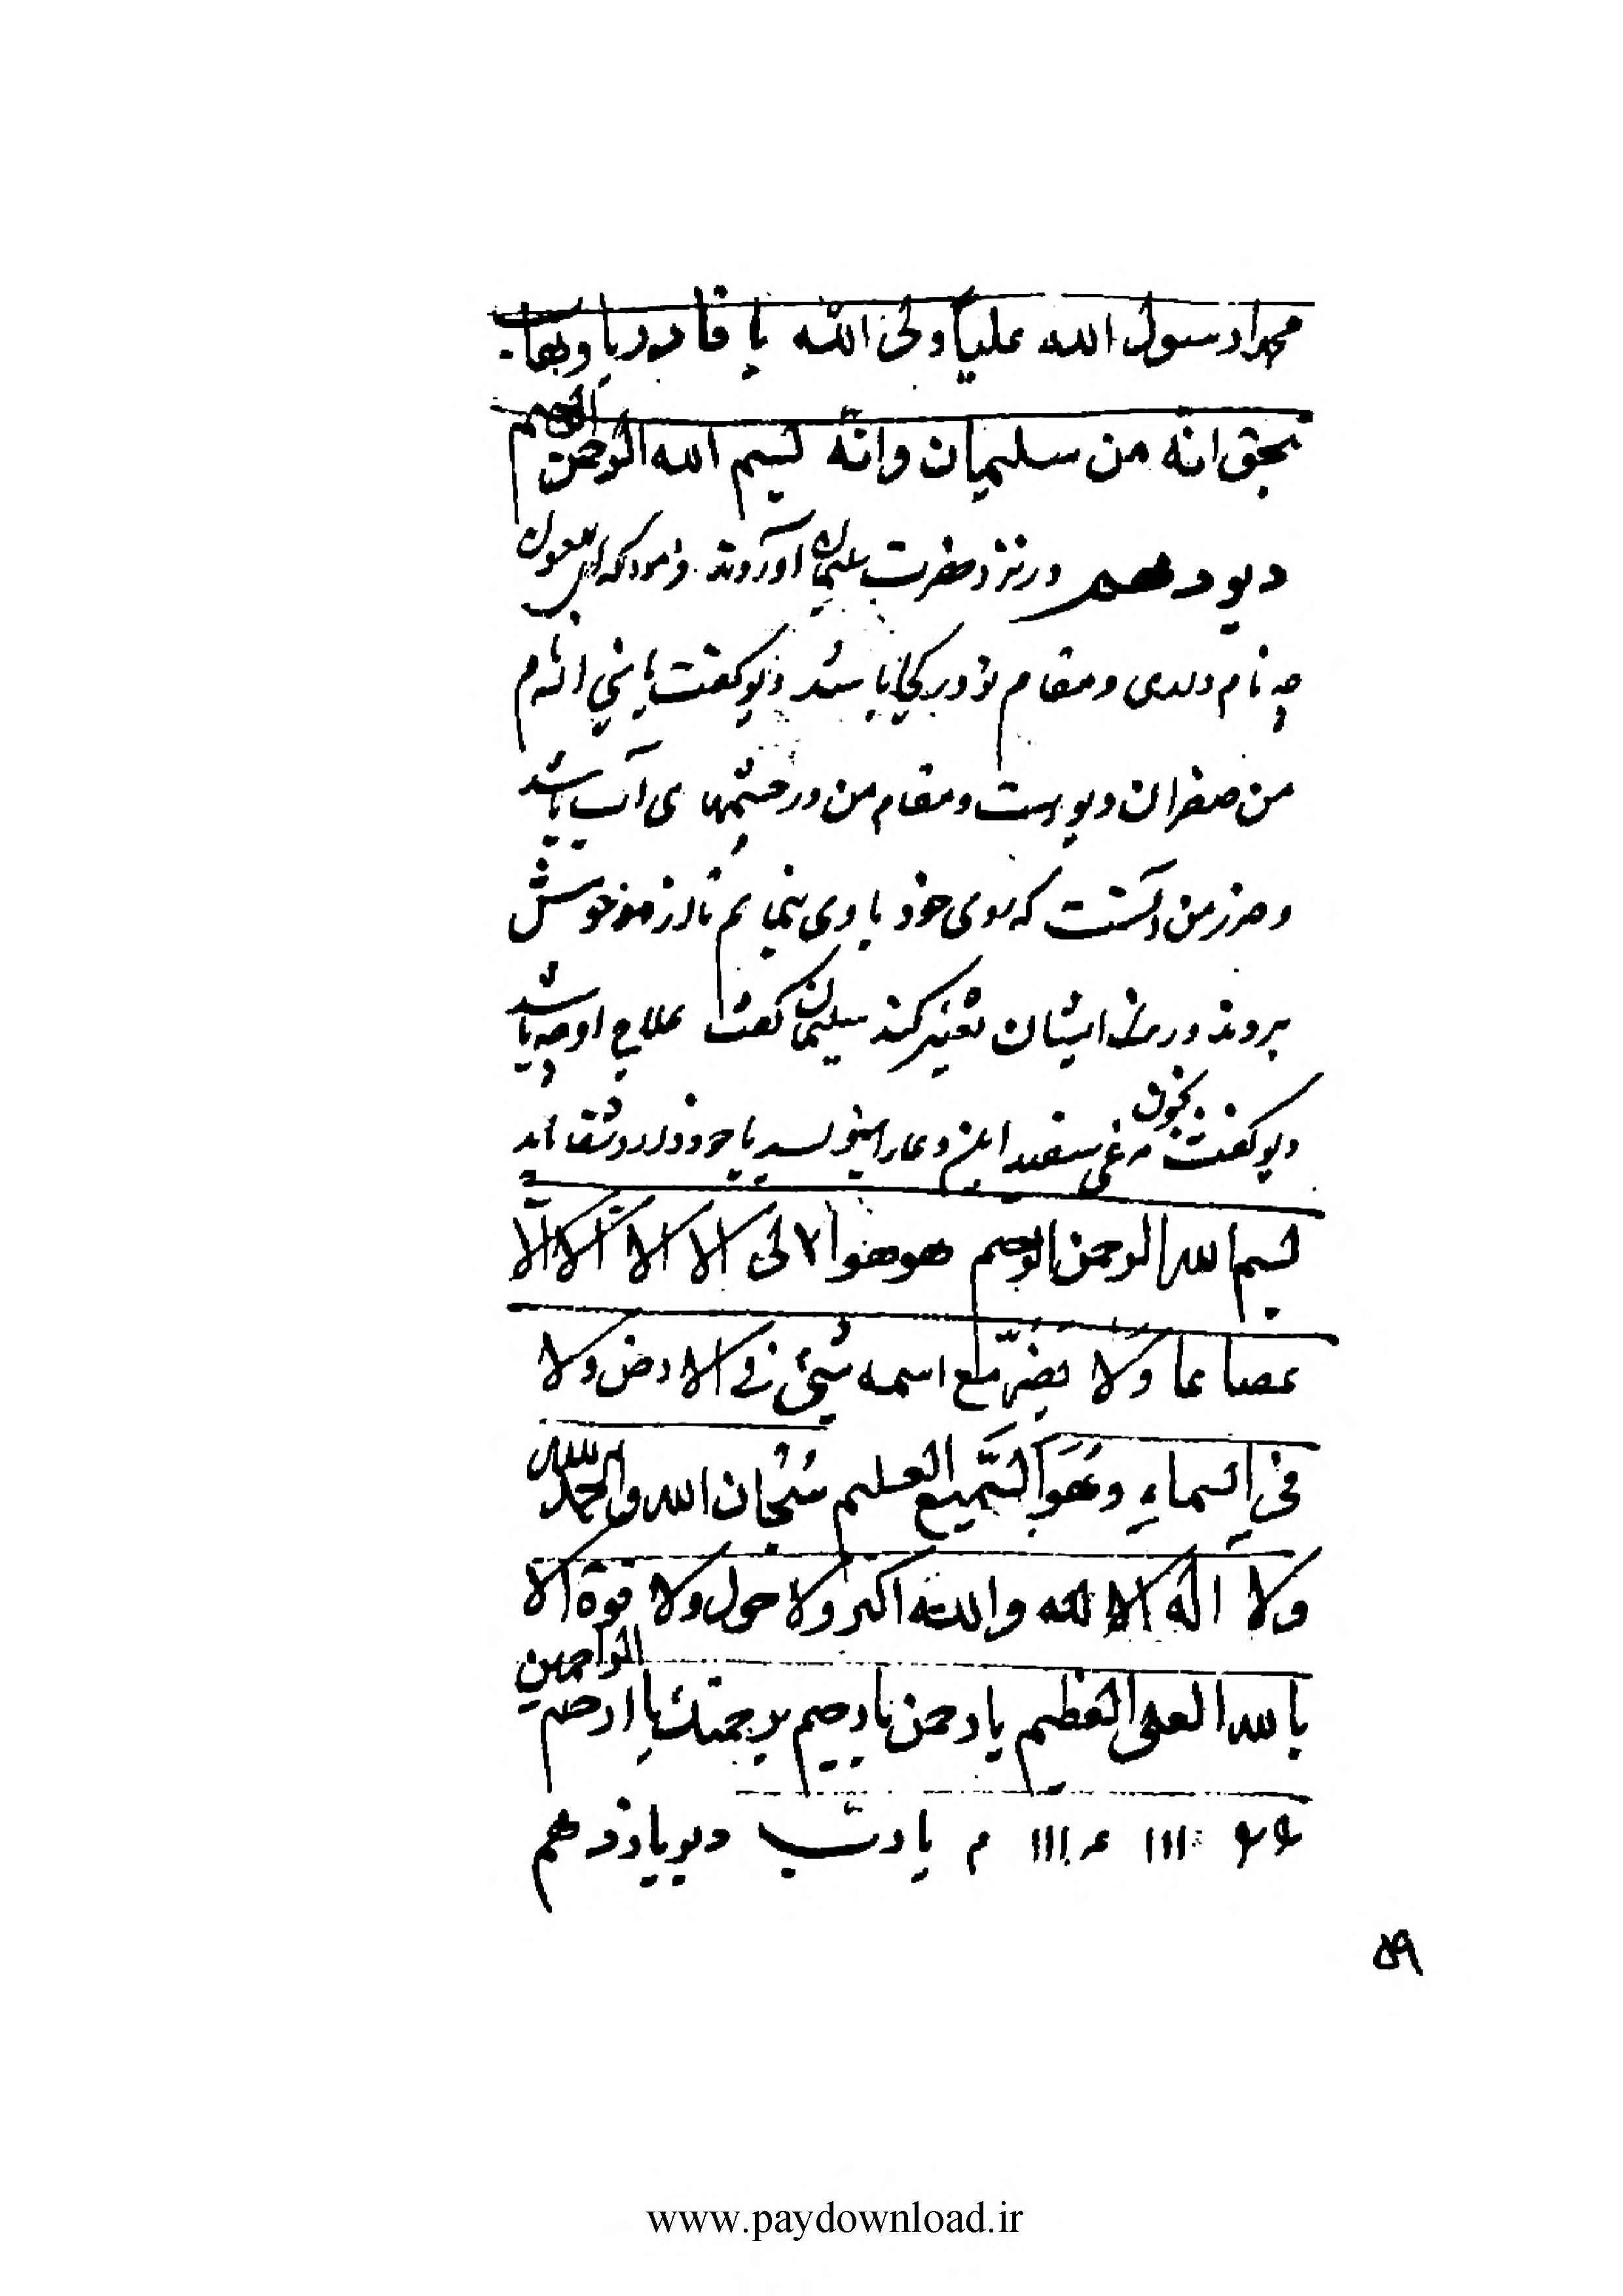 محمدا رسول الله عليا ولى الله يا قادر يا
بحق انه من سليمان وانه بسم الله الرحمن الرحيم
ديو دهم در نزد حضرت سليمان آوردند فرمود كه اى ملعون
چه نام دارى و مقام تو در كجا باشد ديو گفت يا نبى الله نام
من صفران ديو است و مقام من در چشمهاى آب باشد
و ضرر من آنست كه بوى خود باوى نمايم تا از مغز خوش
بروند و رنگ ايشان تغير كند سليمان گفت علاج او چه باشد
ديو گفت بخون مرغى سفيد اين دعا را بنويسد با خود دارد شفا يابد
بسم الله الرحمن الرحيم هو هو الا الا الا الا
عصا عا ولا يضر مع اسمه شيئ فى الارض ولا
فى السماء وهو السميع العليم سبحان الله والحمد لله
ولا اله الا الله والله اكبر ولا حول ولا قوة الا
بالله العلى العظيم يا رحمن يا رحيم برحمتك يا ارحم الراحمين
۶۶ ااا ااا م يا رب ديو يازدهم
۵۹
www.paydownload.ir